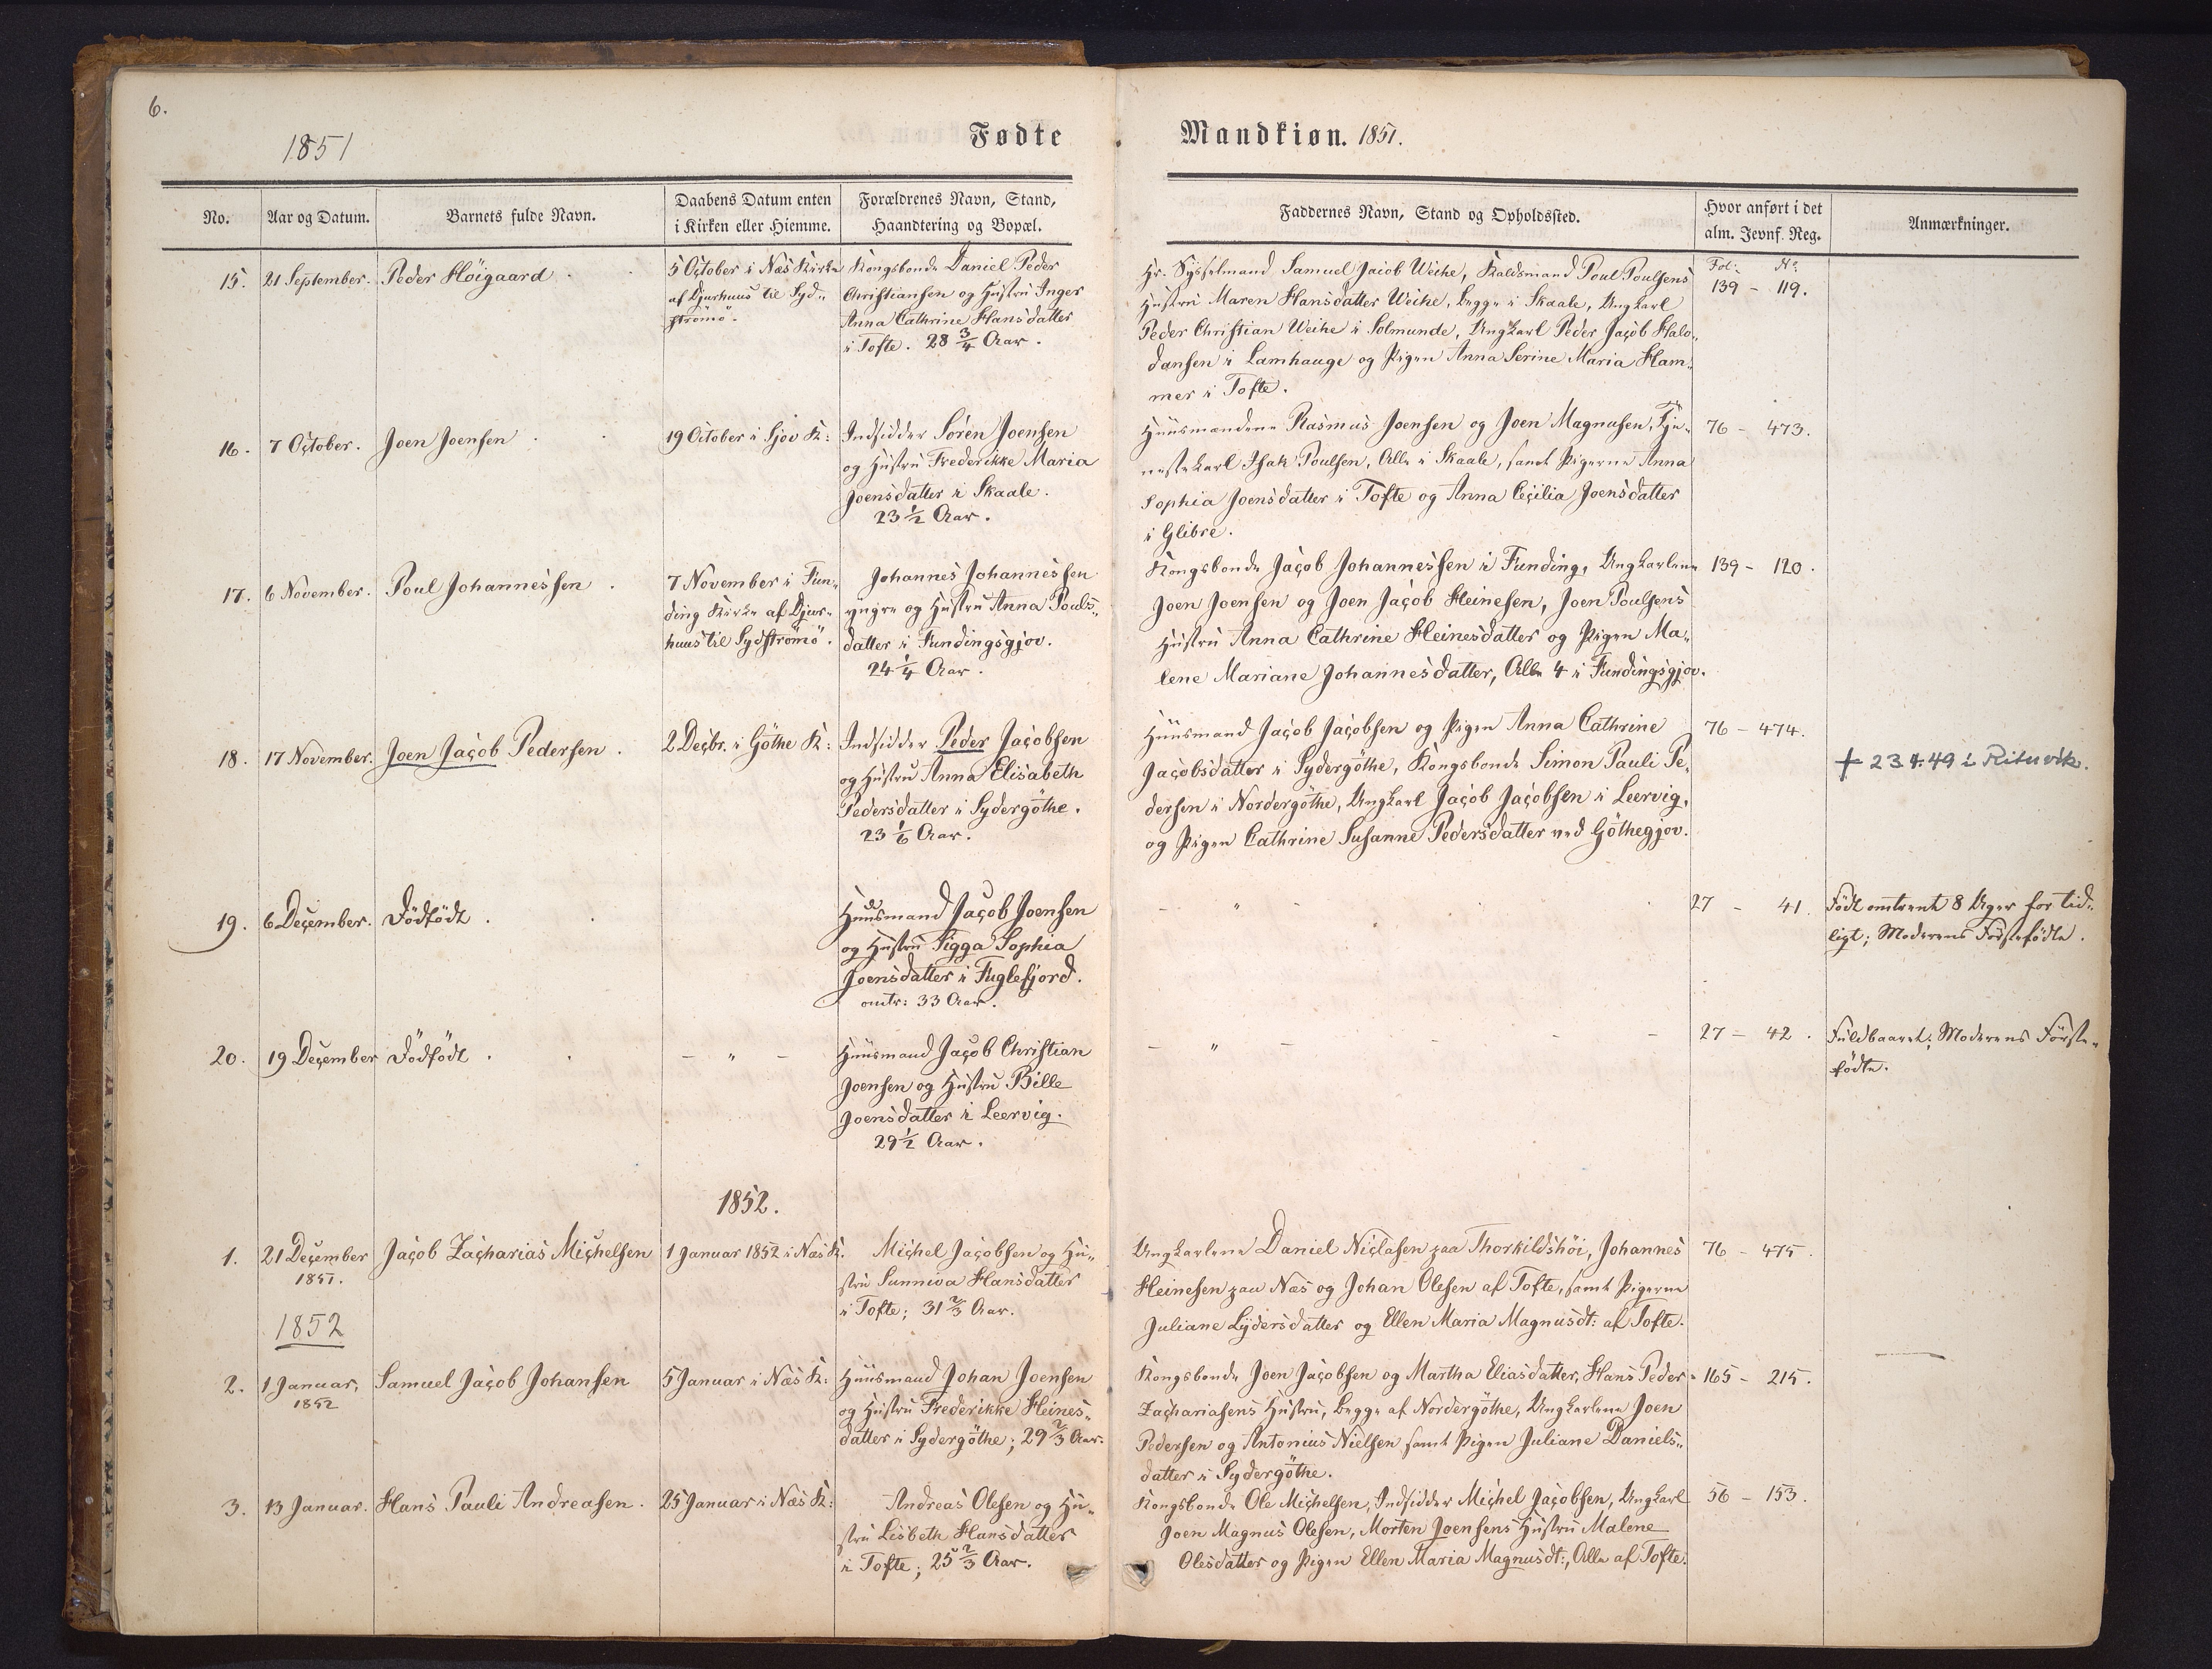 6.
1851
Fødte
No.
Aar og Datum.
Barnets fulde Navn.
Daabens Datum enten
i Kirken eller Hiemme.
Forældrenes Navn, Stand,
Haandtering og Bopæl.
15.
21 September.
Peder Höigaard
5 October i Næs Kirke
af Djurhuus til Syd-
strömö.
Kongsbonde Daniel Peder
Christiansen og Hustru Inger
Anna Cathrine Hansdatter
i Tofte. 28 3/4 Aar.
16.
7 October.
Joen Joensen
19 October i Gjov K:
Indsidder Sören Joensen
og Hustru Frederikke Maria
Joensdatter i Skaale.
23 1/2 Aar.
17.
6 November.
Poul Johannessen
7 November i Fun-
ding Kirke af Djur-
huus til Sydströmö.
Johannes Johannessen
yngre og Hustru Anna Pouls-
datter i Fundingsgjov.
24 1/4 Aar.
18.
17 November.
Joen Jacob Pedersen.
2 Decbr. i Göthe K:
Indsidder Peder Jacobsen
og Hustru Anna Elisabeth
Pedersdatter i Sydergöthe.
23 1/6 Aar.
19.
6 December.
Dödfödt.
Huusmand Jacob Joensen
og Hustru Sigga Sophia
Joensdatter i Fuglefjord.
omtr: 33 Aar.
20.
19 December
Dödfödt.
- " -
Huusmand Jacob Christian
Joensen og Hustru Bille
Joensdatter i Leervig.
29 1/2 Aar.
1852.
1.
21 December
1851.
Jacob Zacharias Michelsen
1 Januar 1852 i Næs K.
Michel Jacobsen og Hu-
stru Sunniva Hansdatter
i Tofte; 31 2/3 Aar.
1852
2.
1 Januar,
1852
Samuel Jacob Johansen
5 Januar i Næs K:
Huusmand Johan Joensen
og Hustru Frederikke Heines-
datter i Sydergöthe; 29 2/3 Aar.
3.
13 Januar.
Hans Pauli Andreasen.
25 Januar i Næs K:
Andreas Olesen og Hu-
stru Lisbeth Hansdatter
i Tofte; 25 2/3 Aar.
Mandkiøn. 1851.
Faddernes Navn, Stand og Opholdssted.
Hvor anført i det
alm. Jevnf. Reg.
Anmærkninger.
Hr. Sysselmand Samuel Jacob Weihe, Kaldsmand Poul Poulsens
Hustru Maren Hansdatter Weihe, begge i Skaale, Ungkarl
Peder Christian Weihe i Solmunde, Ungkarl Peder Jacob Halv-
dansen i Lamhauge og Pigen Anna Serine Maria Ham-
mer i Tofte.
Fol: No
139 - 119.
Huusmændene Rasmus Joensen og Joen Magnusen, Tje-
nestekarl Isak Poulsen, Alle i Skaale, samt Pigerne Anna
Sophia Joensdatter i Tofte og Anna Cecilia Joensdatter
i Glibre.
76 - 473.
Kongsbonde Jacob Johannessen i Funding, Ungkarlene
Joen Joensen og Joen Jacob Heinesen, Joen Poulsens
Hustru Anna Cathrine Heinesdatter og Pigen Ma-
lene Mariane Johannesdatter, Alle 4 i Fundingsgjov.
139 - 120.
Huusmand Jacob Jacobsen og Pigen Anna Cathrine
Jacobsdatter i Sydergöthe, Kongsbonde Simon Pauli Pe-
dersen i Nordergöthe, Ungkarl Jacob Jacobsen i Leervig,
og Pigen Cathrine Susanne Pedersdatter ved Göthegjov.
76 - 474.
+ 23.4.49 i Rituvík.
- " -
27 - 41.
Födt omtrent 8 Uger for tid-
ligt; Moderens Förstefödte.
- " - - -
27 - 42.
Fuldbaaret; Moderens Förste-
födte.
Ungkarlene Daniel Niclasen paa Thorkildshöi, Johannes
Heinesen paa Næs og Johan Olesen af Tofte, samt Pigerne
Juliane Lydersdatter og Ellen Maria Magnusdt: af Tofte.
76 - 475.
Kongsbonde Joen Jacobsen og Martha Eliasdatter, Hans Peder
Zachariasens Hustru, begge af Nordergöthe, Ungkarlene Joen
Pedersen og Antonius Nielsen samt Pigen Juliane Daniels-
datter i Sydergöthe.
165 - 215.
Kongsbonde Ole Michelsen, Indsidder Michel Jacobsen, Ungkarl
Joen Magnus Olesen, Morten Joensens Hustru Malene
Olesdatter og Pigen Ellen Maria Magnusdt:, Alle af Tofte.
56 - 153.